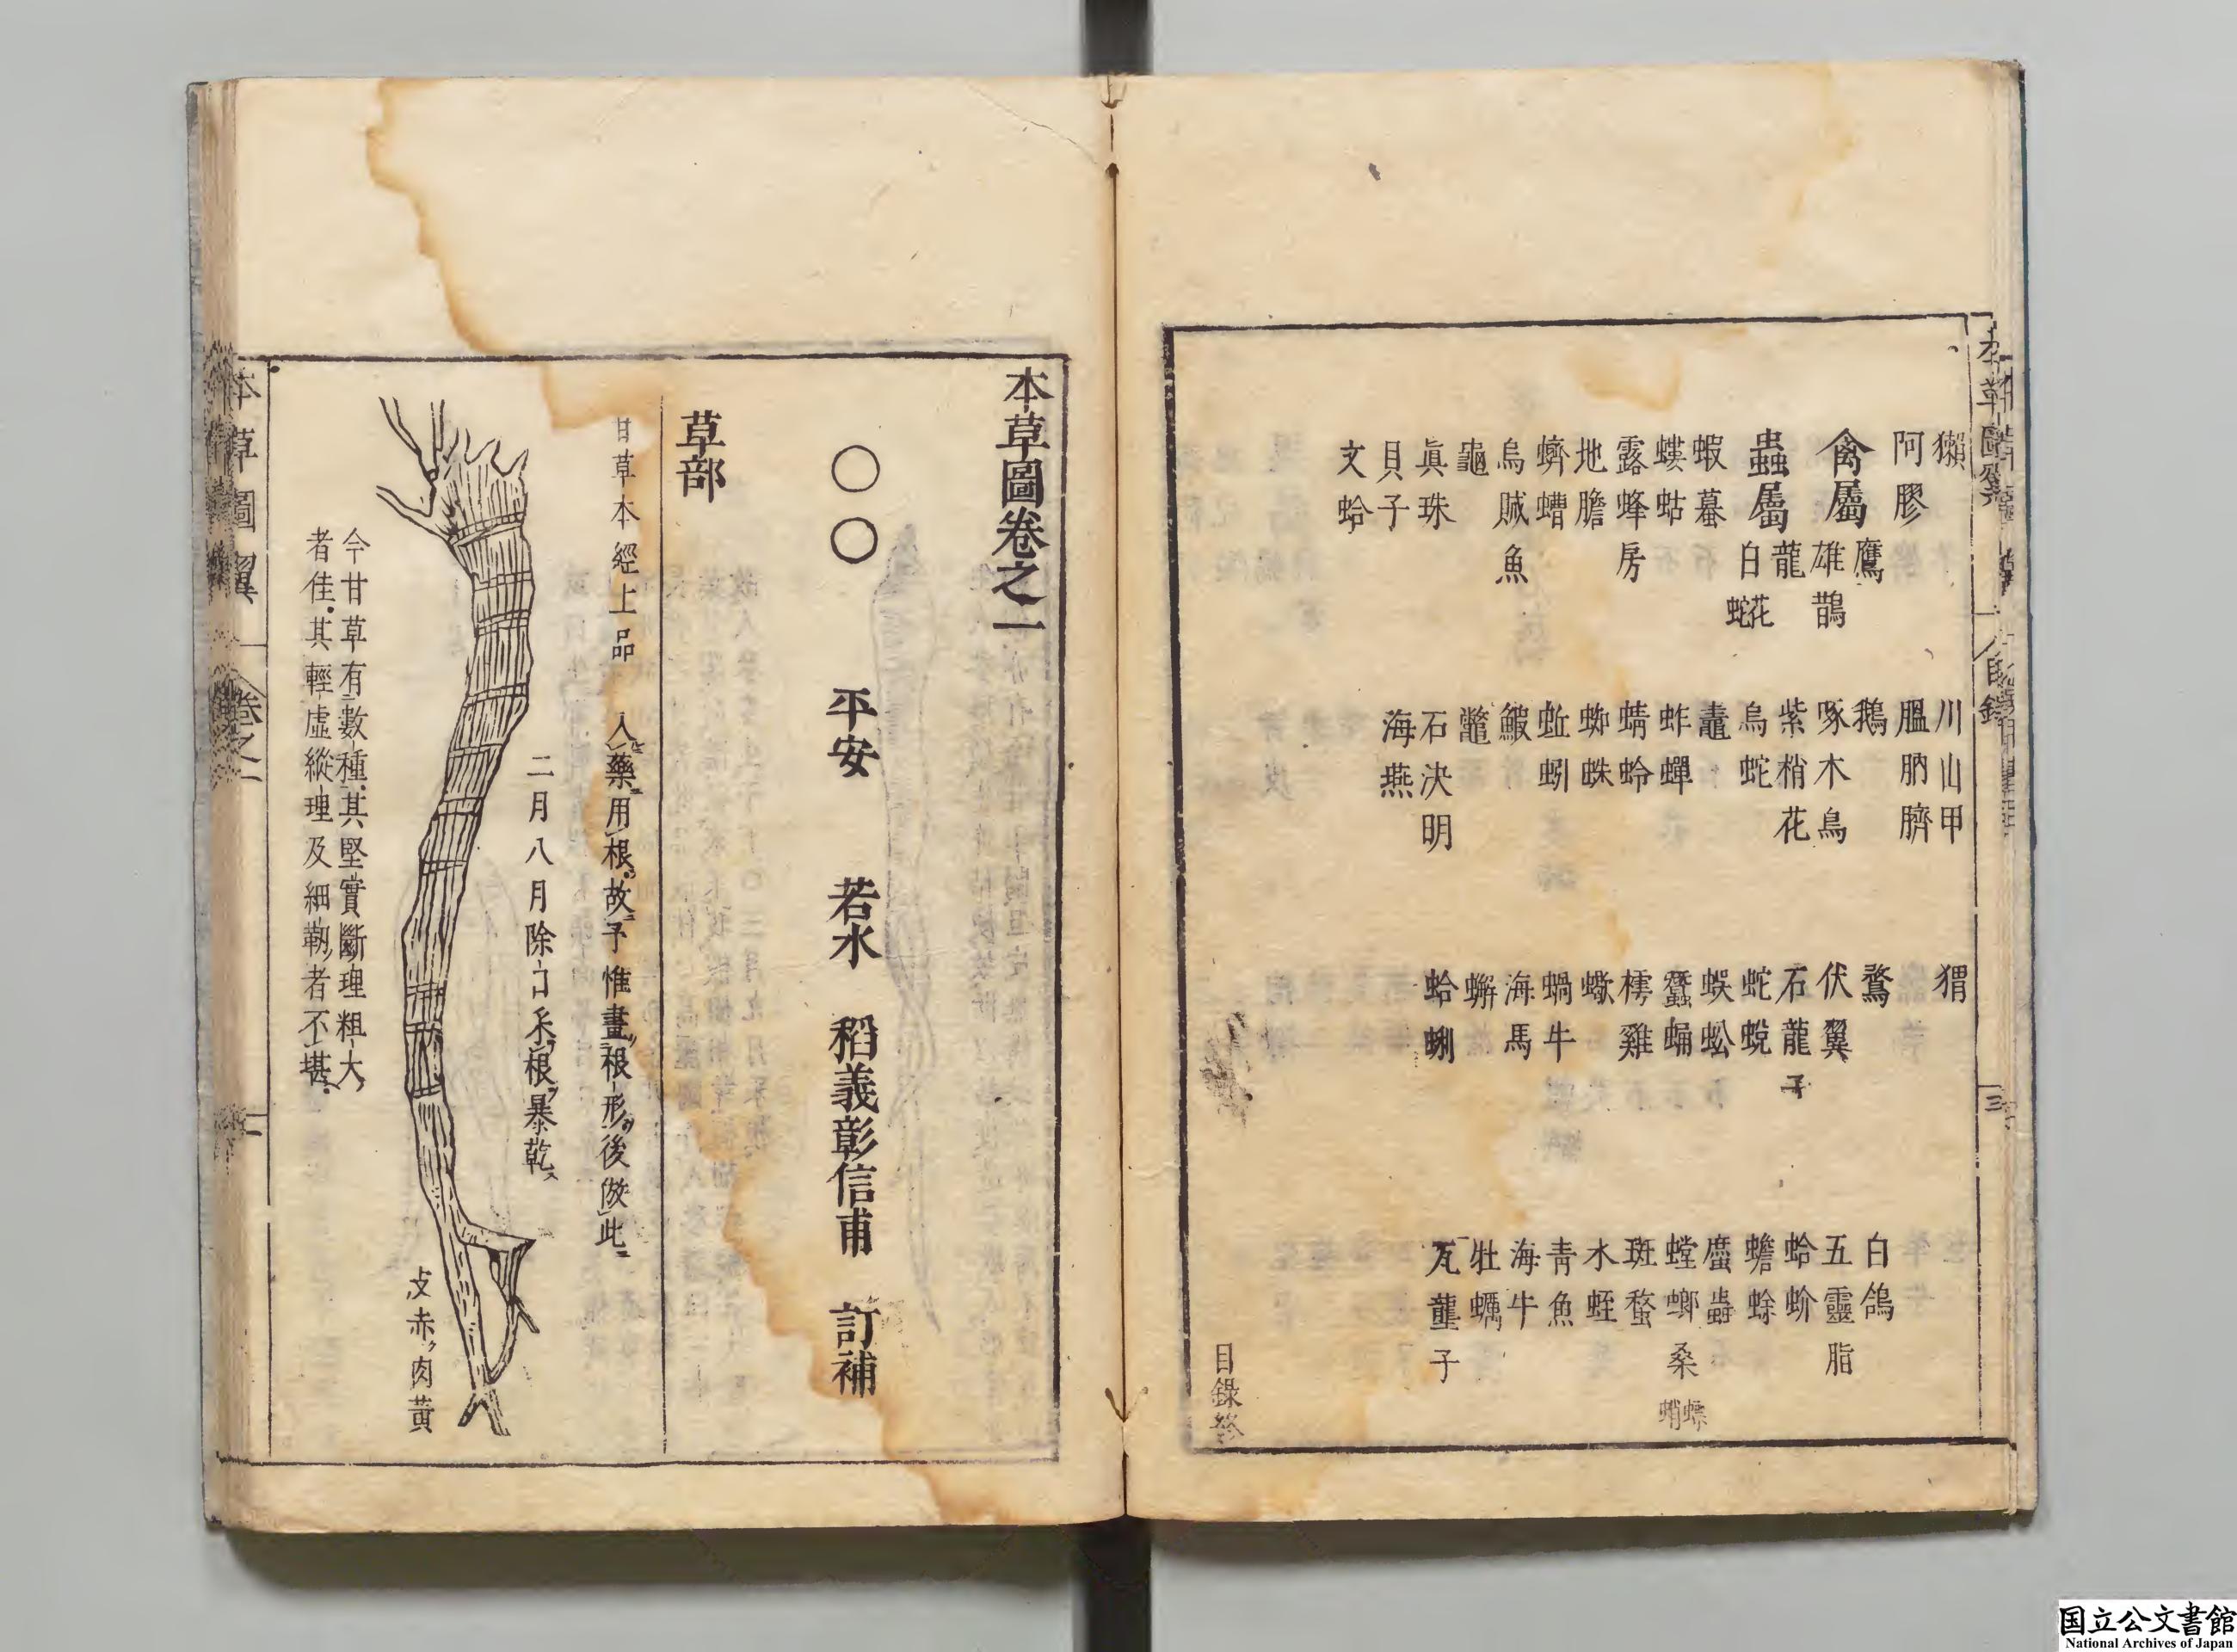 獺　川山甲　猬
阿膠　膃肭臍
禽屬　鷹　鵝　鶩　白鴿
雄鵲　啄木鳥　伏翼　五靈脂
蟲屬　龍　紫梢花　石龍子　蛤蚧
白花蛇　烏蛇　蛇蛻　蟾蜍
蝦蟇　鼃　蜈蚣　䗪蟲
螻蛄　蚱蟬　蠶蛹　螳螂桑螵蛸
露蜂房　蜻蛉　樗雞　斑蝥
地膽　蜘蛛　蠍　水蛭
蠐螬　蚯蚓　蝸牛　青魚
烏賊魚　鰕　海馬　海牛
龜　鼈　蠏　牡蠣
眞珠　石決明　蛤蜊　瓦壟子
貝子　海燕
文蛤
目錄終
三
本草圖卷之一
〇〇　平安　若水　稻義彰信甫　訂補
草部
甘草本經上品　入藥用根故予惟畫根形後倣此
二月八月除日采根暴乾
皮赤肉黄
今甘草有數種其堅實斷理粗大
者佳其輕虛縱理及細靭者不堪
本草圖翼　卷之一　一
国立公文書館
National Archives of Japan